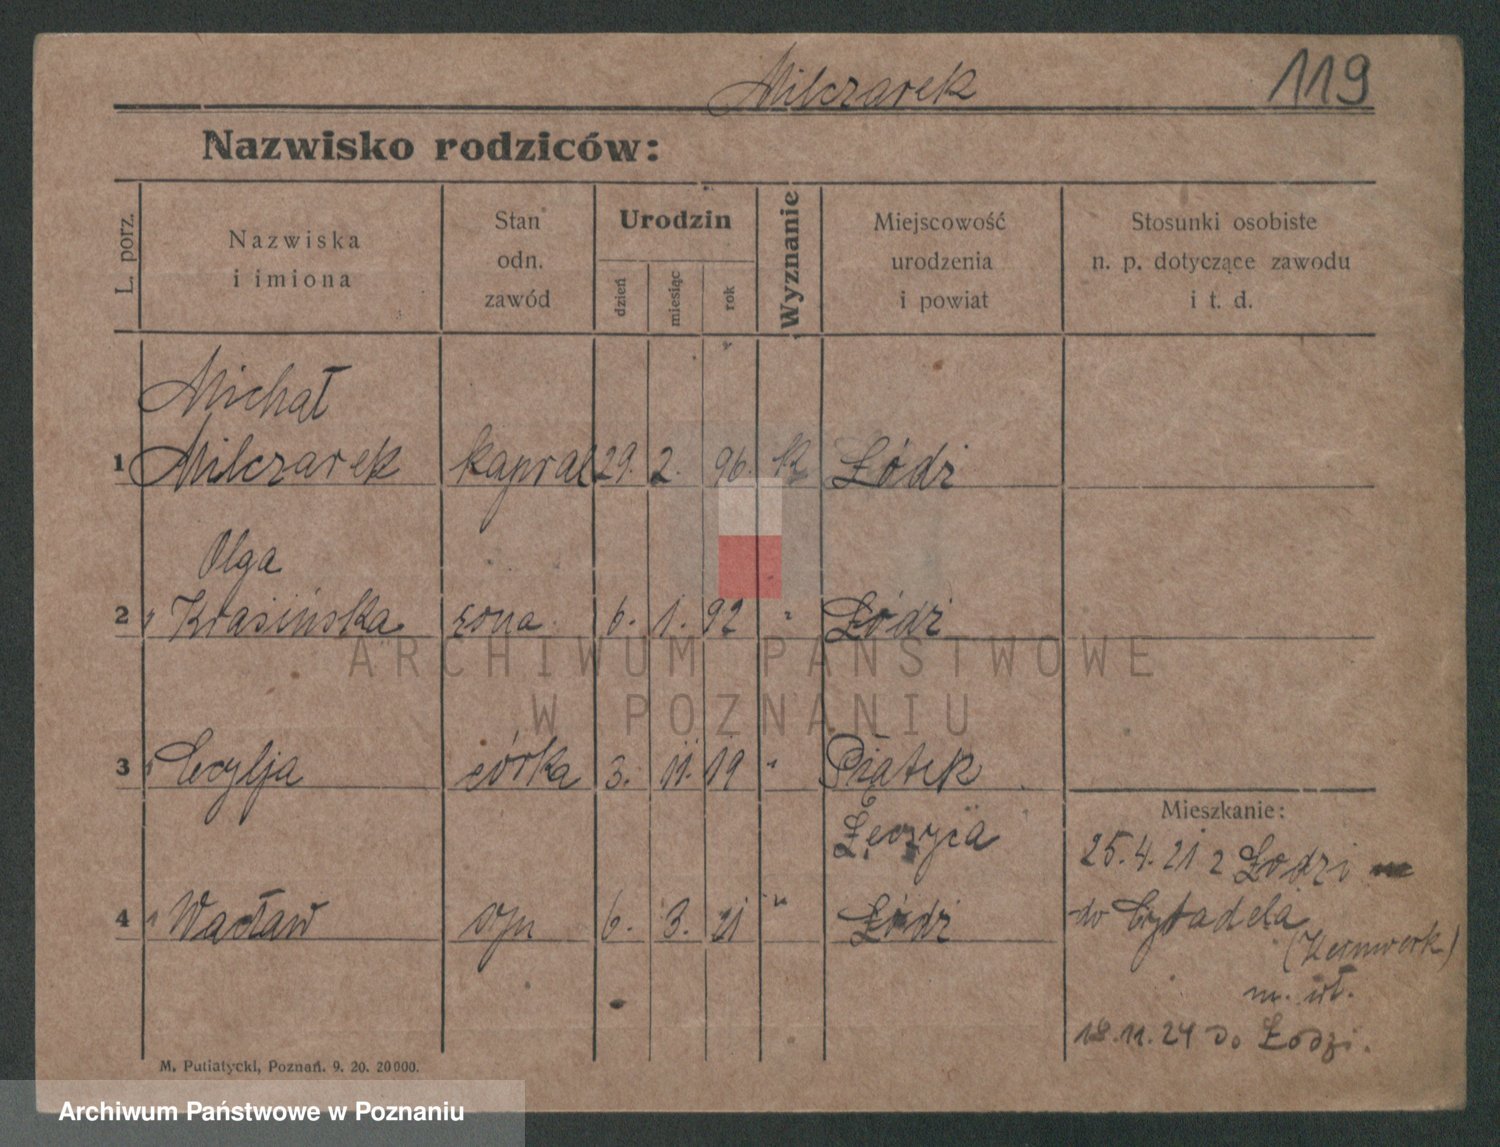 Milczarek
119
Nazwisko rodziców:
L. porz.
Nazwiska
i imiona
Stan
odn.
zawód
Urodzin
dzień
miesiąc
rok
Wyznanie
Miejscowość
urodzenia
i powiat
Stosunki osobiste
n. p. dotyczące zawodu
i t. d.
Michał
1 Milczarek kapral 29. 2. 96. K Łódź
Olga
2 " Krasińska żona 6. 1. 92 " Łódź
3 " Cecylja córka 3. 11. 19 " Piątek
Łęczyca
Mieszkanie:
25.4.21 z Łodzi
4 " Wacław syn 6. 3. 21 " Łódź
do Cytadela
(Kernwerk)
m. wł.
18.11.24 do Łodzi.
M. Putiatycki, Poznań. 9. 20. 20000.
ARCHIWUM PAŃSTWOWE
W POZNANIU
Archiwum Państwowe w Poznaniu